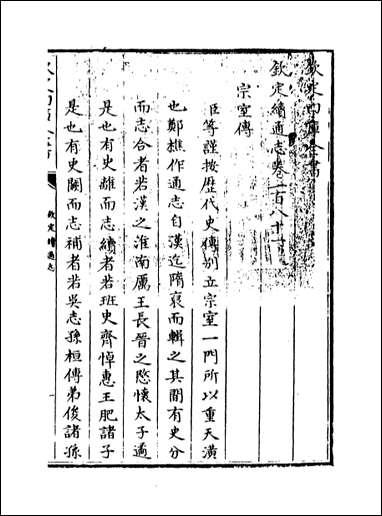 欽定四庫全書
欽定續通志卷一百八十
宗室傳
臣等謹按歷代史傳別立宗室一門所以重天潢
也鄭樵作通志自漢迄隋裒而輯之其間有史分
而志合者若漢之淮南厲王長晉之愍懷太子遹
是也有史離而志續者若班史齊悼惠王肥諸子
是也有史闕而志補者若吳志孫桓傳弟俊諸孫
欽定續通志